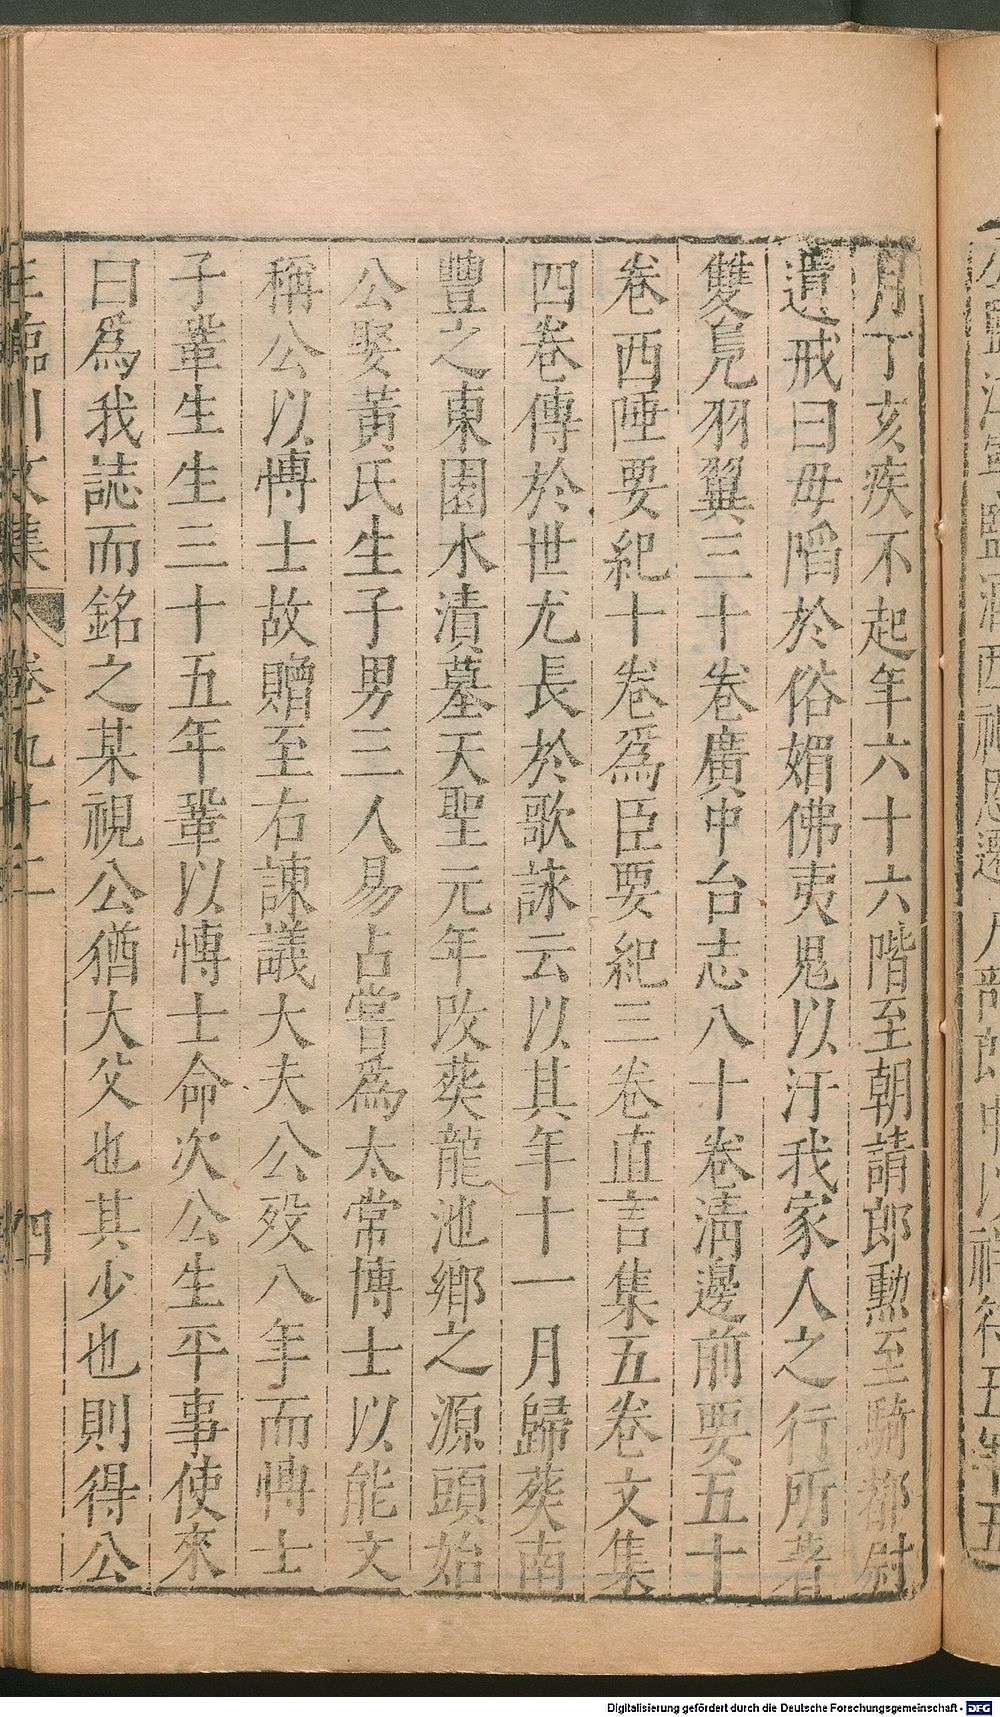 月丁亥疾不起年六十六階至朝請郎勲至騎都尉
遺戒曰毋䧟於俗媚佛夷鬼以汙我家人之行所著
雙鳧羽翼三十卷廣中台志八十卷淸邊前要五十
卷西陲要紀十卷爲臣要紀三卷直言集五卷文集
四卷傳於世尤長於歌詠云以其年十一月歸葬南
豐之東園水漬墓天聖元年改葬龍池鄉之源頭始
公娶黃氏生子男三人易占嘗爲太常博士以能文
稱公以博士故贈至右諫議大夫公歿八年而博士
子鞏生生三十五年鞏以博士命次公生平事使來
曰爲我誌而銘之某視公猶大父也其少也則得公
王臨川文集 卷九十二 四
Digitalisierung gefördert durch die Deutsche Forschungsgemeinschaft - DFG